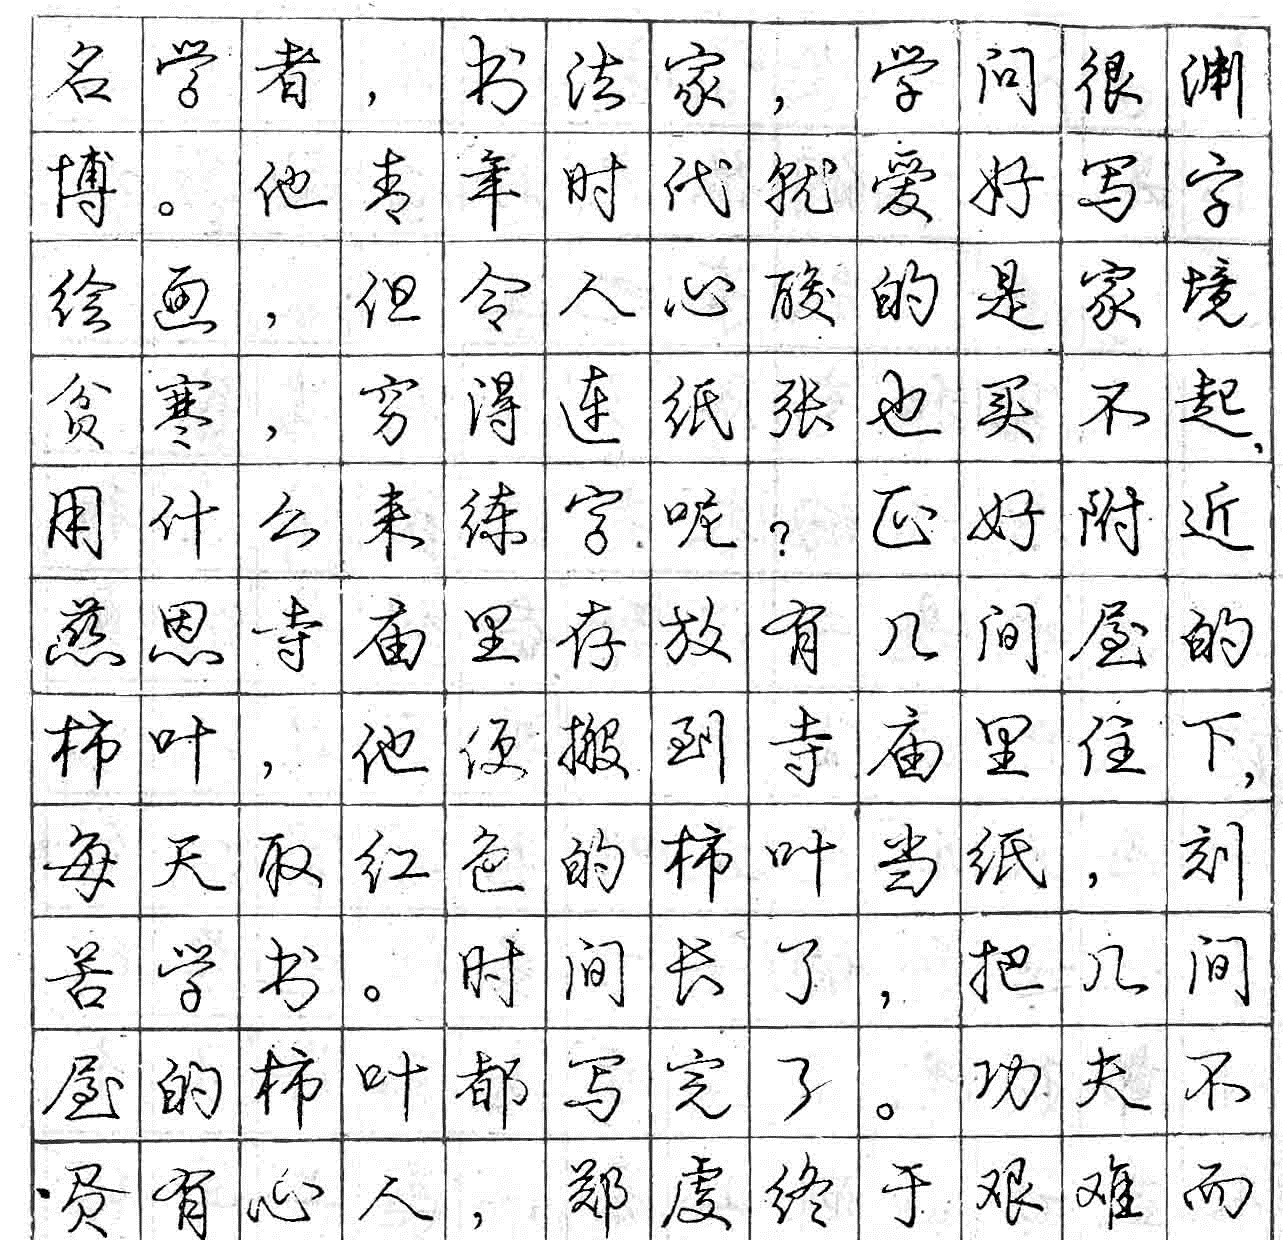 名学者，书法家，学问很渊
博。他青年时代就爱好写字
绘画，但令人心酸的是家境
贫寒，穷得连纸张也买不起，
用什么来练字呢？正好附近
慈恩寺庙里存放有几间屋的
柿叶，他便搬到寺庙里住下，
每天取红色的柿叶当纸，刻
苦学书。时间长了，把几间
屋的柿叶都写完了。功夫不
负有心人，郑虔终于艰难而